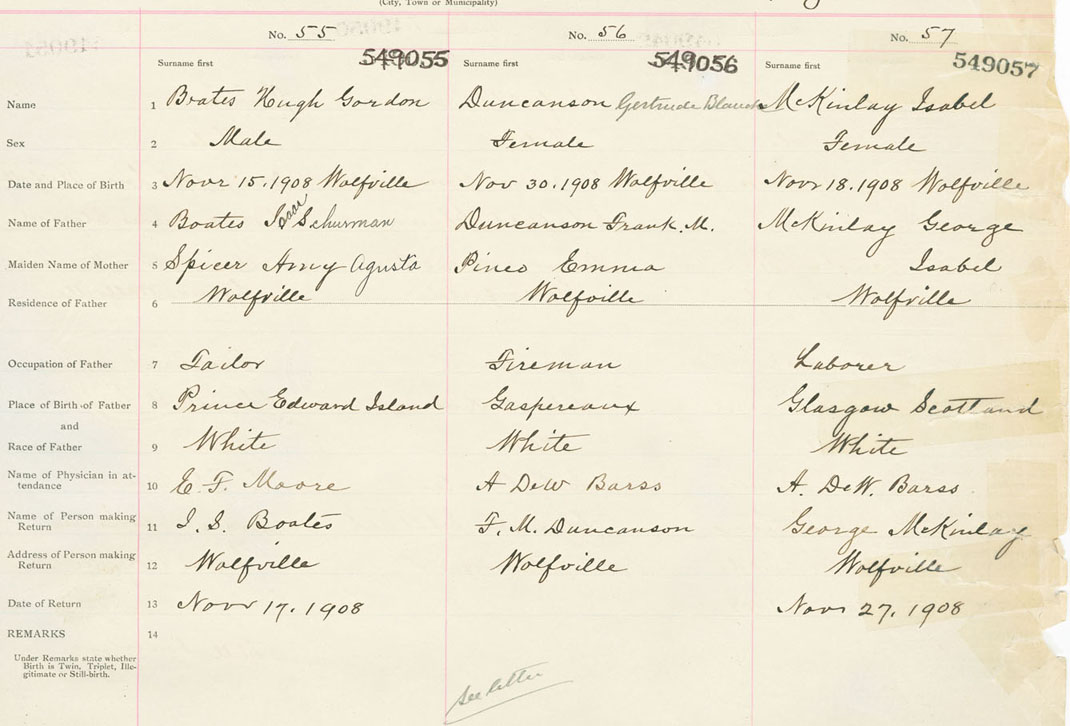 (City, Town or Municipality)
No. 55 No. 56 No. 57
549055 549056 549057
Surname first Surname first Surname first
Name 1 Boates Hugh Gordon Duncanson Gertrude McKinlay Isabel
Sex 2 Male Female Female
Date and Place of Birth 3 Novr 15. 1908 Wolfville Nov 30. 1908 Wolfville Novr 18. 1908 Wolfville
Name of Father 4 Boates Isaac Schurman Duncanson Frank. M. McKinlay George
Maiden Name of Mother 5 Spicer Amy Agusta Pineo Emma Isabel
Residence of Father 6 Wolfville Wolfville Wolfville
Occupation of Father 7 Tailor Fireman Laborer
Place of Birth of Father 8 Prince Edward Island Gaspereaux Glasgow Scotland
and
Race of Father 9 White White White
Name of Physician in at-
tendance 10 E. F. Moore A DeW Barss A. DeW. Barss
Name of Person making
Return 11 I. S. Boates F. M. Duncanson George McKinlay
Address of Person making
Return 12 Wolfville Wolfville Wolfville
Date of Return 13 Novr 17. 1908 Novr 27. 1908
REMARKS 14
Under Remarks state whether
Birth is Twin, Triplet, Ille-
gitimate or Still-birth.
see letter